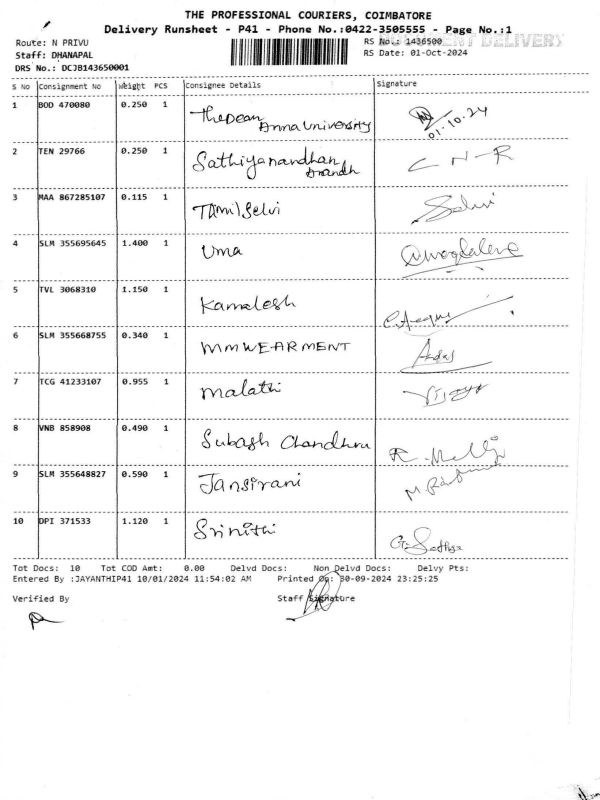 THE PROFESSIONAL COURIERS, COIMBATORE
Delivery Runsheet - P41 - Phone No.:0422-3505555 - Page No.:1
Route: N PRIVU RS No.: 1436500 DELIVERY
Staff: DHANAPAL RS Date: 01-Oct-2024
DRS No.: DCJB143650001
S No Consignment No Weight PCS Consignee Details Signature
1 BOD 470080 0.250 1 The Dean
Anna University 01.10.24
2 TEN 29766 0.250 1 Sathiyanandhan
Anandh C N-R
3 MAA 867285107 0.115 1 Tamil Selvi Selvi
4 SLM 355695645 1.400 1 Uma
5 TVL 3068310 1.150 1 Kamalesh
6 SLM 355668755 0.340 1 MMWEARMENT
7 TCG 41233107 0.955 1 Malathi
8 VNB 858908 0.490 1 Subash Chandhru
9 SLM 355648827 0.590 1 Jansirani
10 DPI 371533 1.120 1 Srinithi
Tot Docs: 10 Tot COD Amt: 0.00 Delvd Docs: Non Delvd Docs: Delvy Pts:
Entered By :JAYANTHIP41 10/01/2024 11:54:02 AM Printed On: 30-09-2024 23:25:25
Verified By Staff Signature